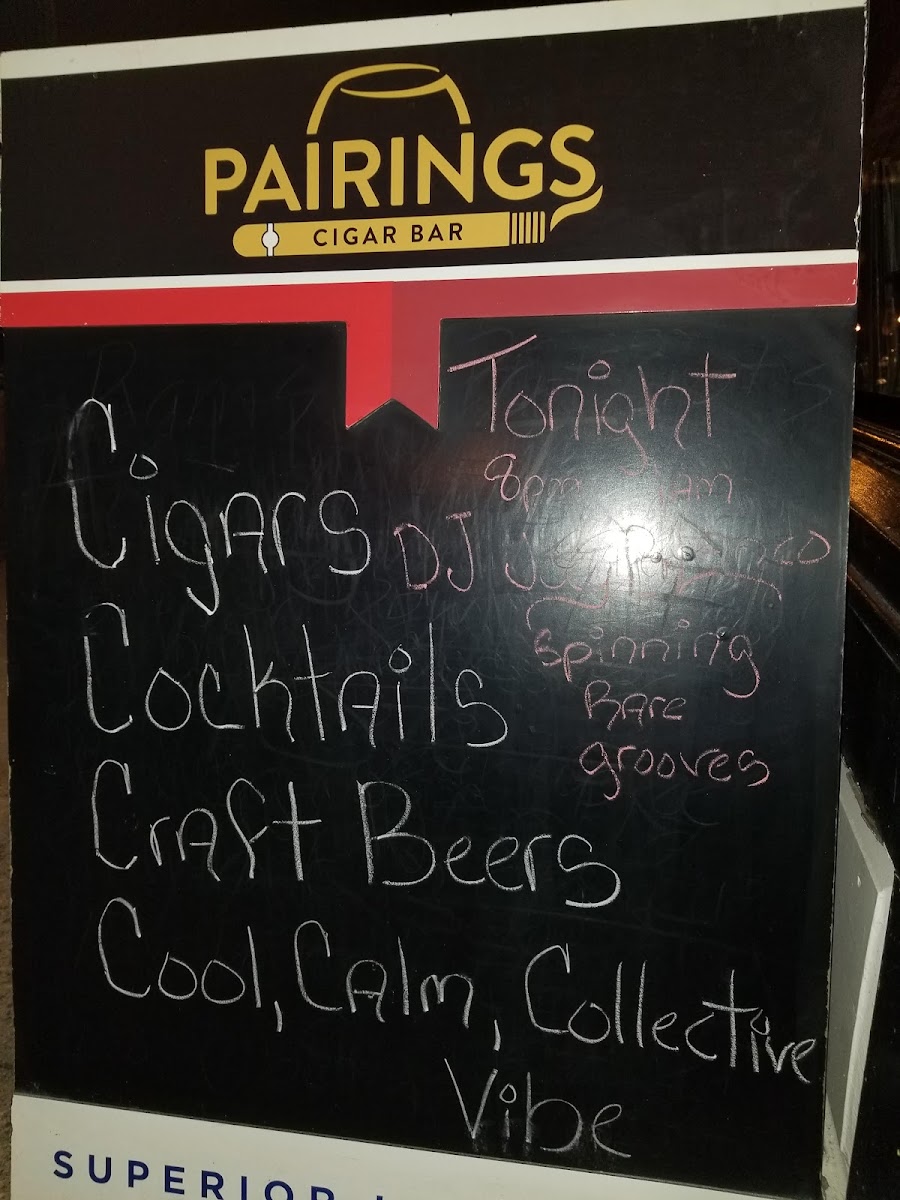 PAIRINGS
CIGAR BAR
Tonight
8pm 1am
DJ
spinning
Rare
grooves
Cigars
Cocktails
Craft Beers
Cool, Calm, Collective
Vibe
SUPERIOR